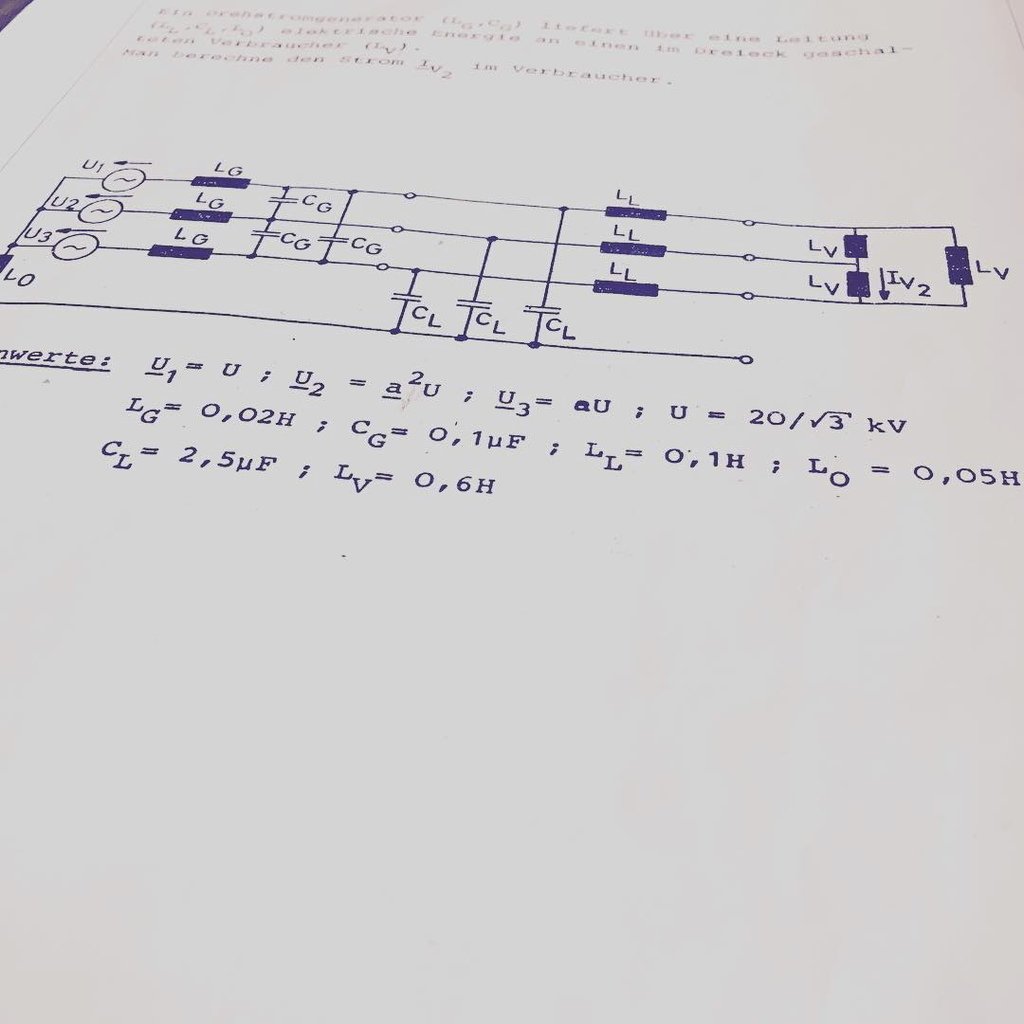 Ein Drehstromgenerator (LG,CG) liefert über eine Leitung
(LL,CL,LO) elektrische Energie an einen im Dreieck geschal-
teten Verbraucher (LV).
Man berechne den Strom IV2 im Verbraucher.
U1 LG LL
U2 LG CG LL LV
U3 LG CG CG LL LV IV2 LV
LO CL CL CL
nwerte: U1= U ; U2 = a²U ; U3= aU ; U = 20/√3 kV
LG= 0,02H ; CG= 0,1µF ; LL= 0,1H ; LO = 0,05H
CL= 2,5µF ; LV= 0,6H